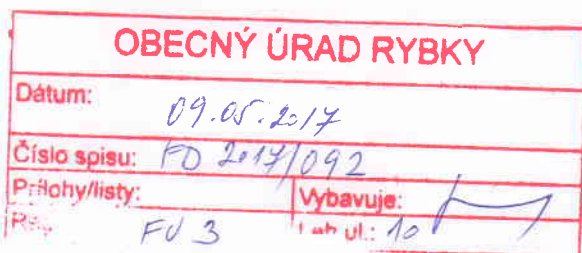 OBECNÝ ÚRAD RYBKY
Dátum: 09.05.2017
Číslo spisu: FD 2017/092
Prílohy/listy: Vybavuje:
FV 3 Leh ul.: 10